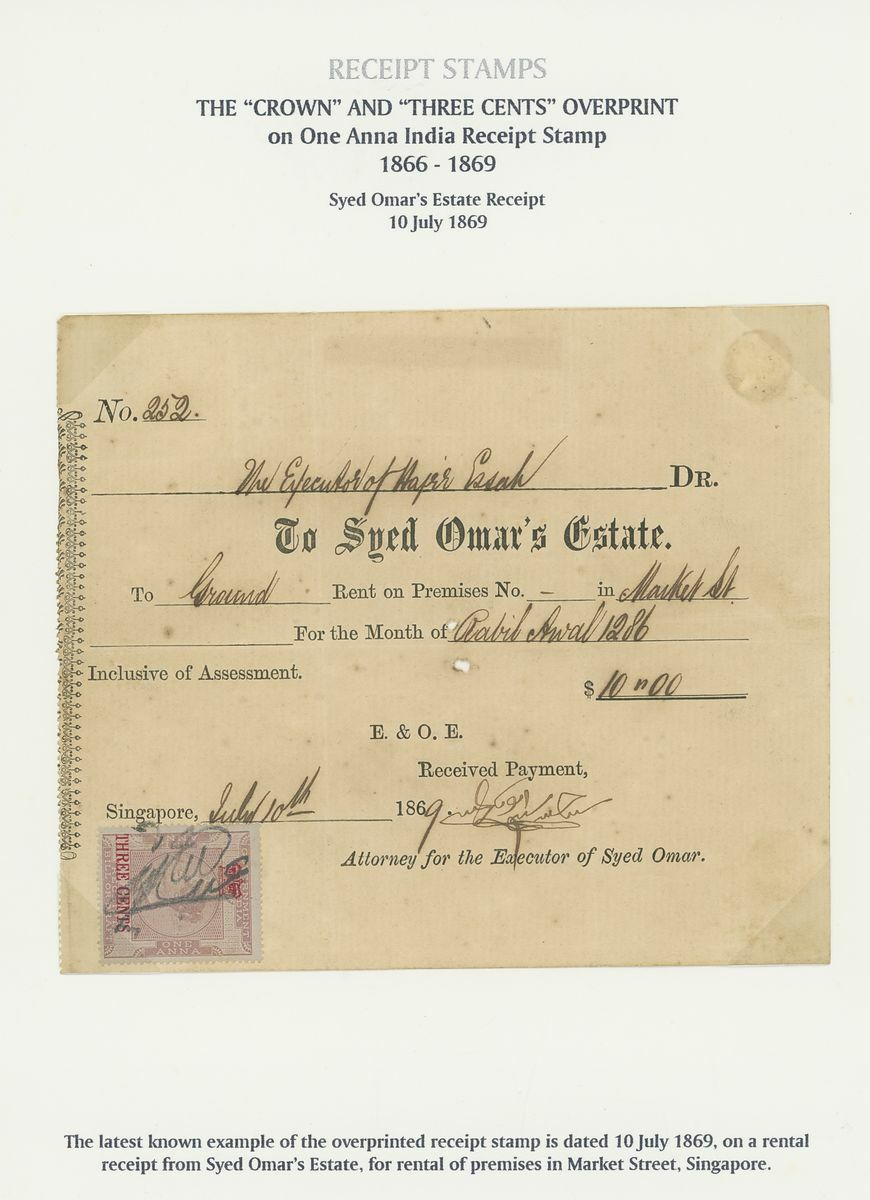 RECEIPT STAMPS
THE “CROWN” AND “THREE CENTS” OVERPRINT
on One Anna India Receipt Stamp
1866 - 1869
Syed Omar's Estate Receipt
10 July 1869
No. 252.
The Executor of Hajee Essah DR.
To Syed Omar's Estate.
To Ground Rent on Premises No. – in Market St.
For the Month of Rabil Awal 1286
Inclusive of Assessment.
$ 10 " 00
E. & O. E.
Received Payment,
Singapore, July 10th 1869.
Attorney for the Executor of Syed Omar.
THREE CENTS
ONE
ANNA
The latest known example of the overprinted receipt stamp is dated 10 July 1869, on a rental
receipt from Syed Omar's Estate, for rental of premises in Market Street, Singapore.